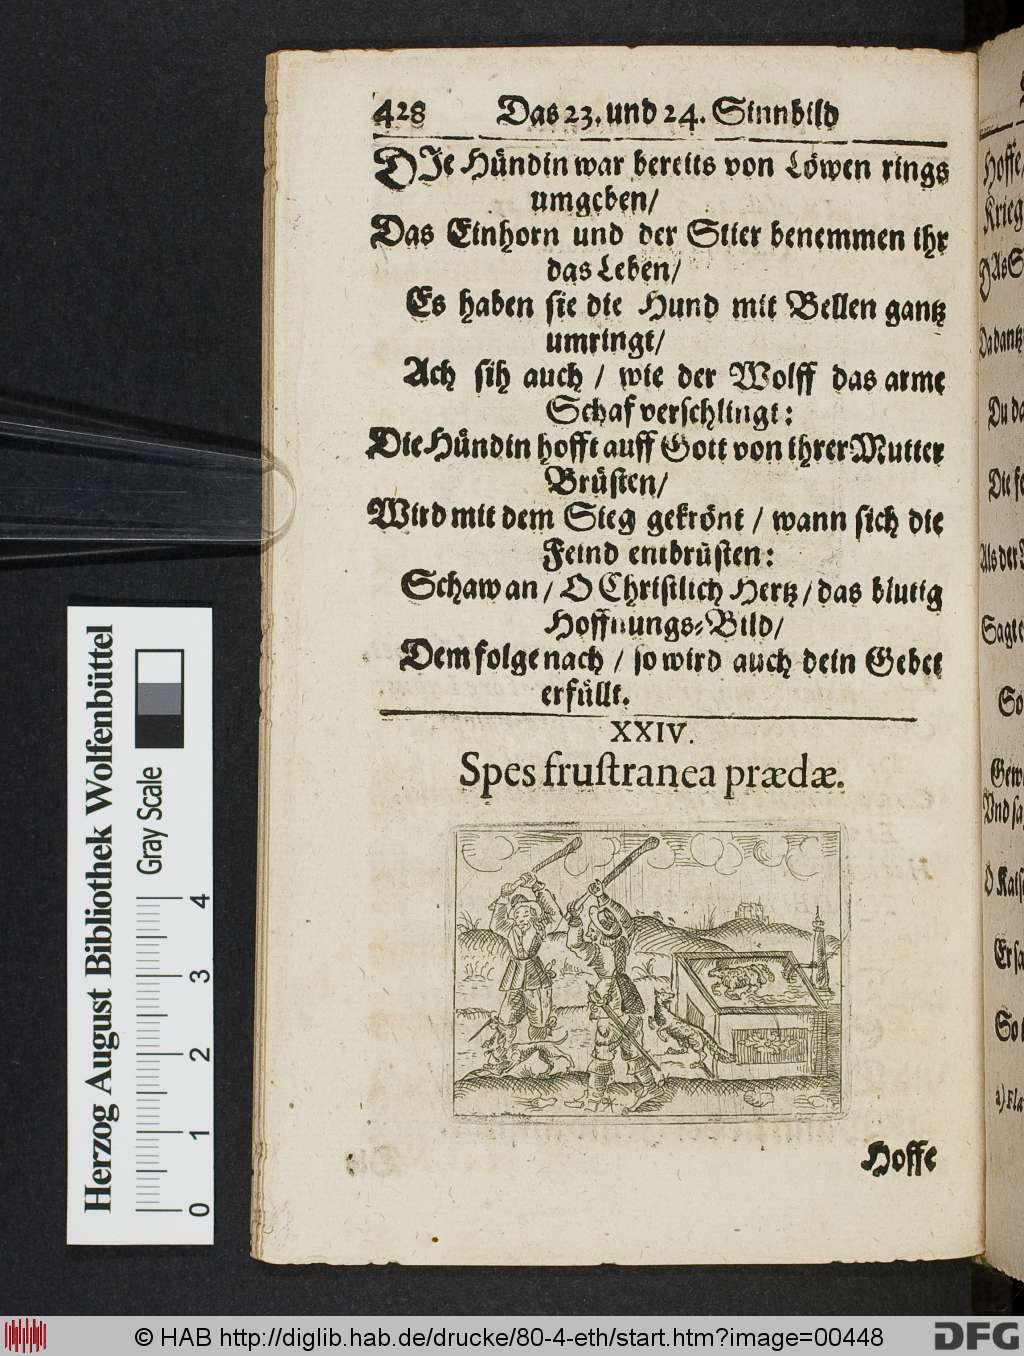 428 Das 23. und 24. Sinnbild
DIe Hündin war bereits von Löwen rings
umgeben/
Das Einhorn und der Stier benemmen ihr
das Leben/
Es haben sie die Hund mit Bellen gantz
umringt/
Ach sih auch / wie der Wolff das arme
Schaf verschlingt:
Die Hündin hofft auff Gott von ihrer Mutter
Brüsten/
Wird mit dem Sieg gekrönt / wann sich die
Feind entbrüsten:
Schaw an / O Christlich Hertz / das blutig
Hoffnungs-Bild/
Dem folge nach / so wird auch dein Gebet
erfüllt.
XXIV.
Spes frustranea prædæ.
Hoffe
Hoffe/
Krieg
Da dantz
Du da
Die
Als der
Sagte
So
Gew
Vnd sa
Er sa
So
Herzog August Bibliothek Wolfenbüttel
Gray Scale
0 1 2 3 4
© HAB http://diglib.hab.de/drucke/80-4-eth/start.htm?image=00448
DFG